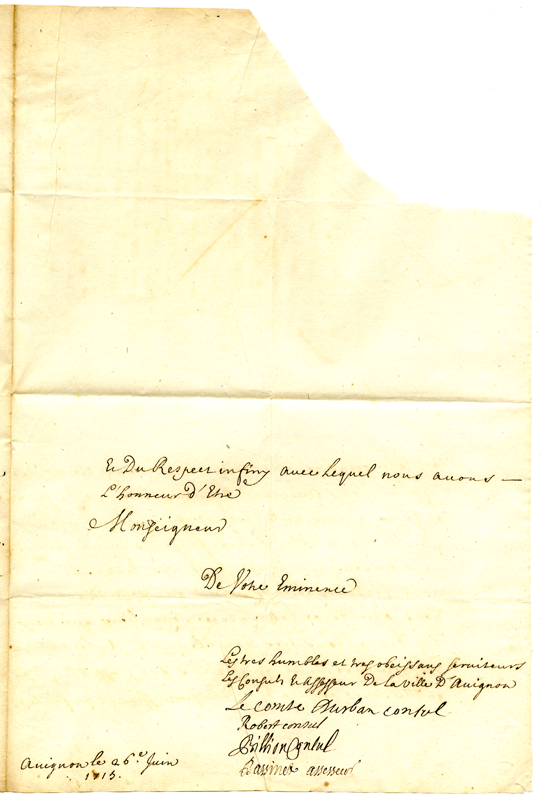 et Du Respect infiny avec lequel nous avons —
L'honneur d'Etre
Monseigneur
De Votre Eminence
Les tres humbles et tres obeissans serviteurs
Les Consuls et assesseur De la ville D'Avignon
Le comte Durban consul
Robert consul
Billion Consul
Bassinet assesseur
Avignon le 26.e Juin
1713.